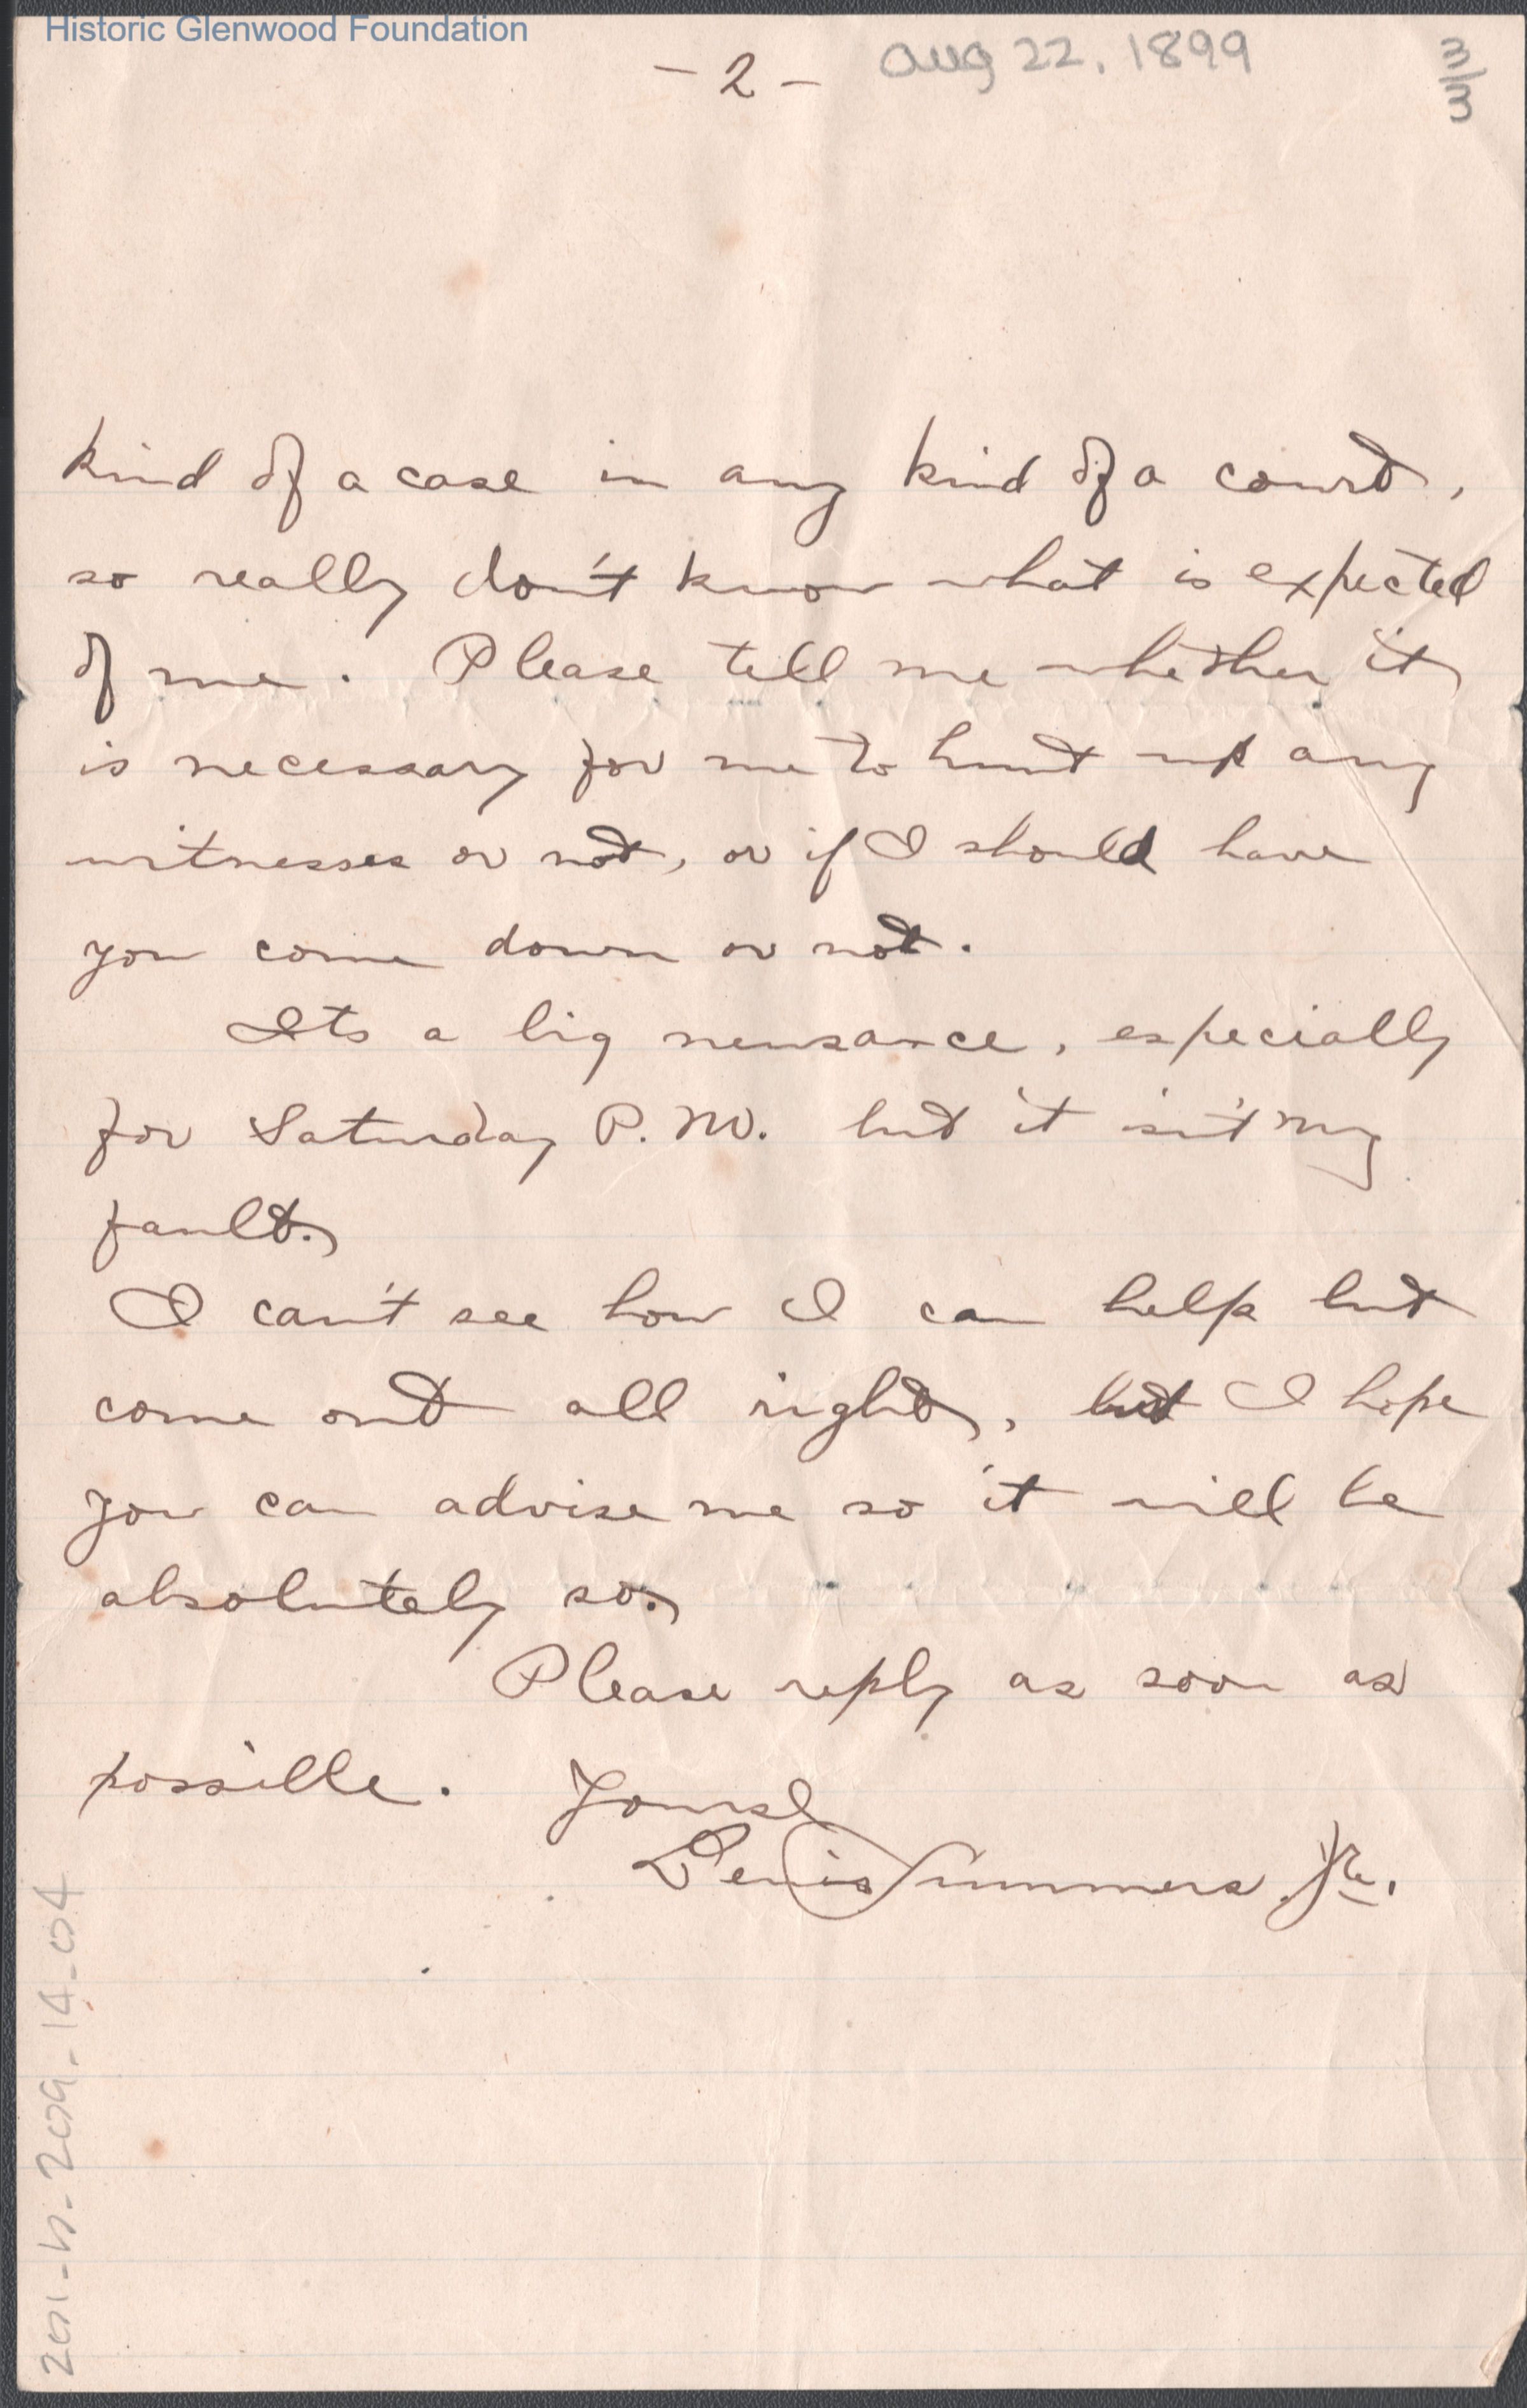 Historic Glenwood Foundation
- 2 - Aug 22, 1899 3/3
kind of a case in any kind of a court,
so really don't know what is expected
of me. Please tell me whether it
is necessary for me to hunt up any
witnesses or not, or if I should have
you come down or not.
Its a big neusance, especially
for Saturday P.M. but it isn't my
fault.
I can't see how I can help but
come out all right, but I hope
you can advise me so it will be
absolutely so.
Please reply as soon as
possible. Yours
Lewis Summers Jr.
201-h-209-14-04